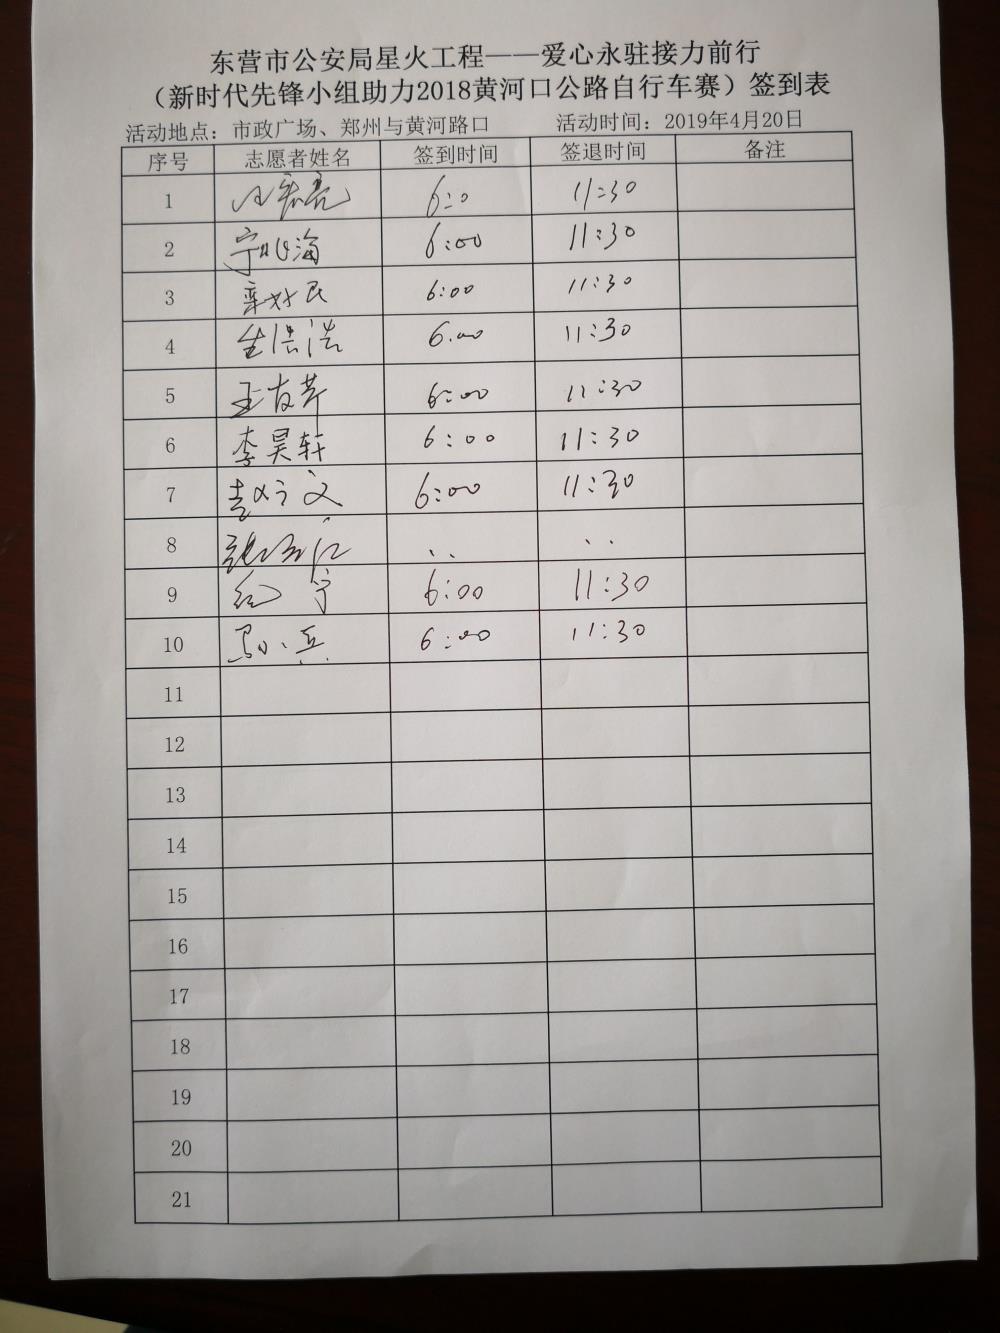 东营市公安局星火工程——爱心永驻接力前行
（新时代先锋小组助力2018黄河口公路自行车赛）签到表
活动地点：市政广场、郑州与黄河路口 活动时间：2019年4月20日
序号 志愿者姓名 签到时间 签退时间 备注
1 6:0 11:30
2 6:00 11:30
3 6:00 11:30
4 6:00 11:30
5 王友芹 6:00 11:30
6 李昊轩 6:00 11:30
7 6:00 11:30
8 .. ..
9 纪宁 6:00 11:30
10 马小兵 6:00 11:30
11
12
13
14
15
16
17
18
19
20
21